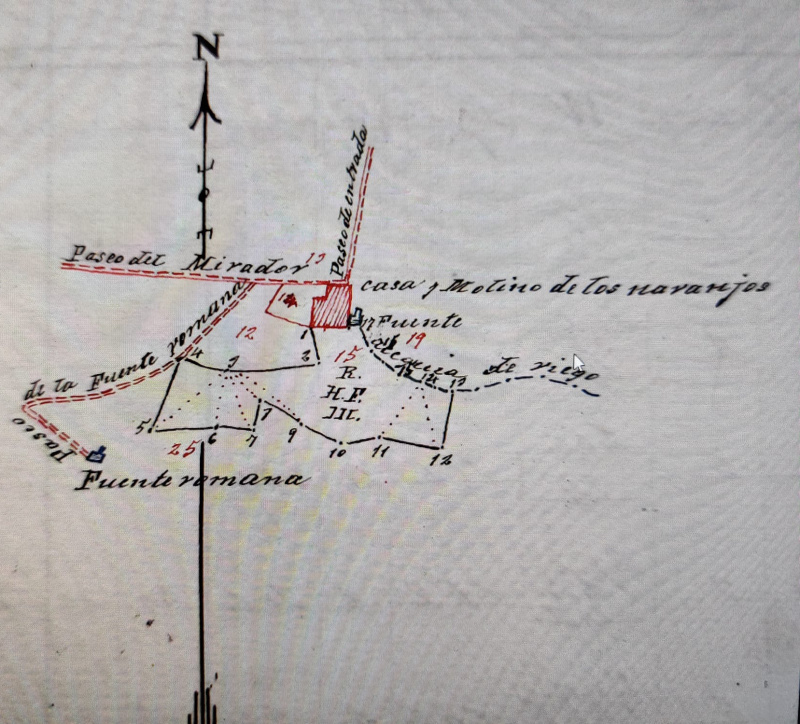 N
Paseo de entrada
Paseo del Mirador 13
casa y Molino de los naranjos
17 Fuente
12
1
19
15
2
Acequia de riego
13
4
3
R.
H.F.
M.
Paseo
de la Fuente romana
5
6
7
7
9
10
11
12
25
Fuente romana